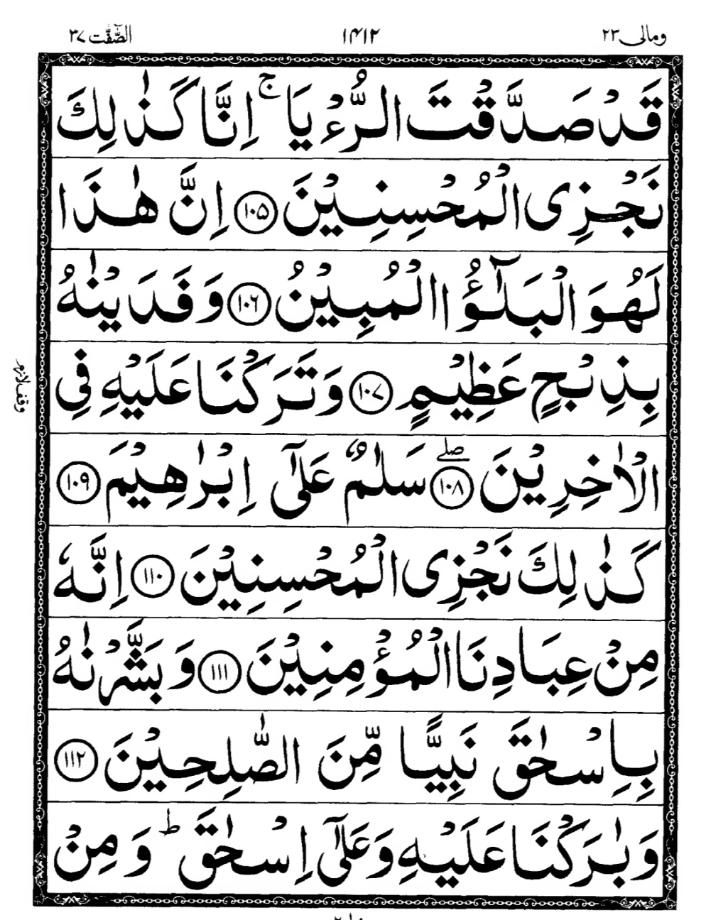 الصّٰٓفّٰت ٣٧ ١٤١٢ ومالی ٢٣
قَدْ صَدَّقْتَ الرُّءْيَا ۚ اِنَّا كَذٰلِكَ
نَجْزِی الْمُحْسِنِيْنَ ١٠٥ اِنَّ هٰذَا
لَهُوَ الْبَلٰٓؤُا الْمُبِيْنُ ١٠٦ وَفَدَيْنٰهُ
بِذِبْحٍ عَظِيْمٍ ١٠٧ وَتَرَكْنَا عَلَيْهِ فِی
الْاٰخِرِيْنَ ۖ ١٠٨ سَلٰمٌ عَلٰٓی اِبْرٰهِيْمَ ١٠٩
كَذٰلِكَ نَجْزِی الْمُحْسِنِيْنَ ١١٠ اِنَّهٗ
مِنْ عِبَادِنَا الْمُؤْمِنِيْنَ ١١١ وَبَشَّرْنٰهُ
بِاِسْحٰقَ نَبِيًّا مِّنَ الصّٰلِحِيْنَ ١١٢
وَبٰرَكْنَا عَلَيْهِ وَعَلٰٓی اِسْحٰقَ ؕ وَمِنْ